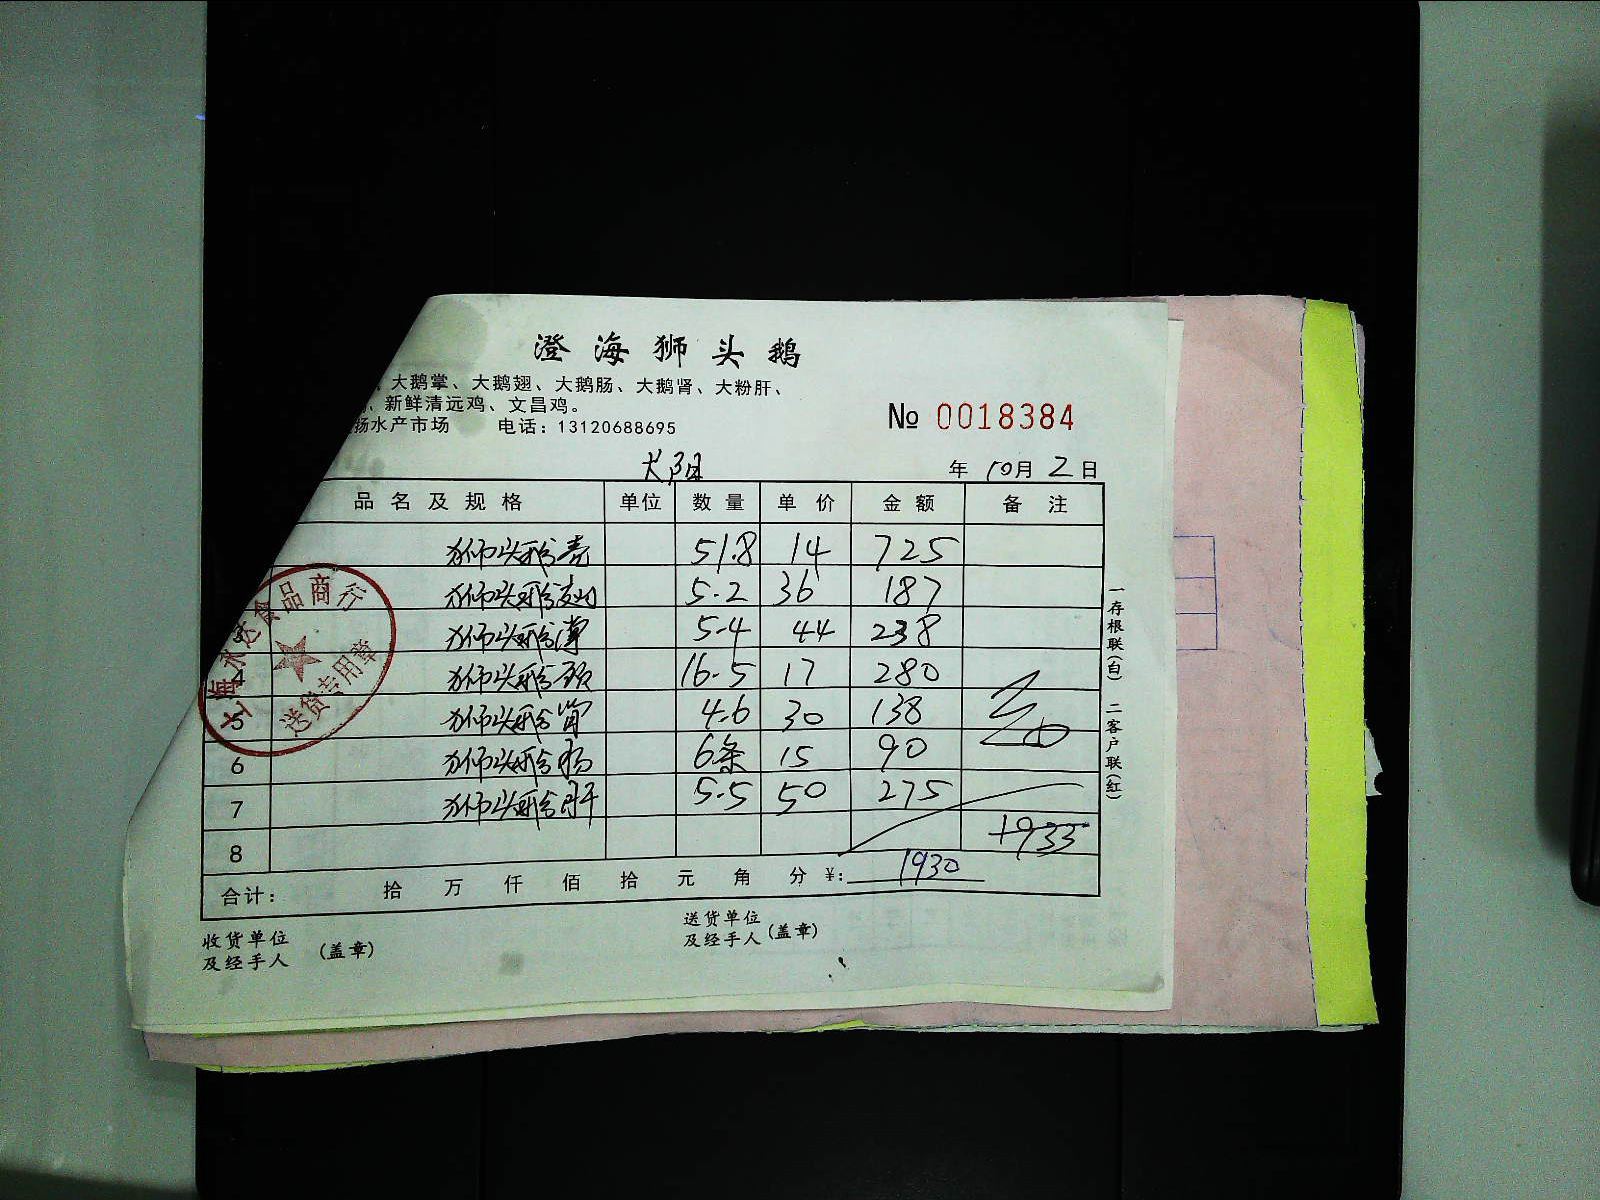 澄海狮头鹅
、大鹅掌、大鹅翅、大鹅肠、大鹅肾、大粉肝、
、新鲜清远鸡、文昌鸡。
扬水产市场 电话：13120688695
№ 0018384
年 10月 2日
品名及规格 单位 数量 单价 金额 备注
狮头鹅壳 51.8 14 725
狮头鹅 5.2 36 187
狮头鹅 5.4 44 238
4 狮头鹅颈 16.5 17 280
5 狮头鹅 4.6 30 138
6 狮头鹅肠 6条 15 90
7 狮头鹅肝 5.5 50 275
8 1933
合计： 拾 万 仟 佰 拾 元 角 分 ¥: 1930
收货单位
及经手人 (盖章)
送货单位
及经手人 (盖章)
一存根联(白) 二客户联(红)
上海永达食品商行
送货专用章